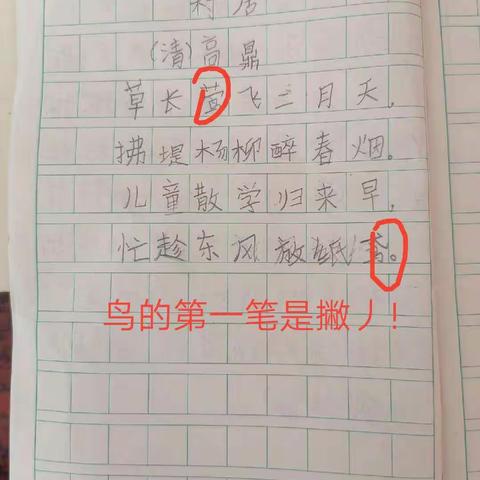 村居
(清)高鼎
草长莺飞二月天,
拂堤杨柳醉春烟。
儿童散学归来早,
忙趁东风放纸鸢。
鸟的第一笔是撇丿!